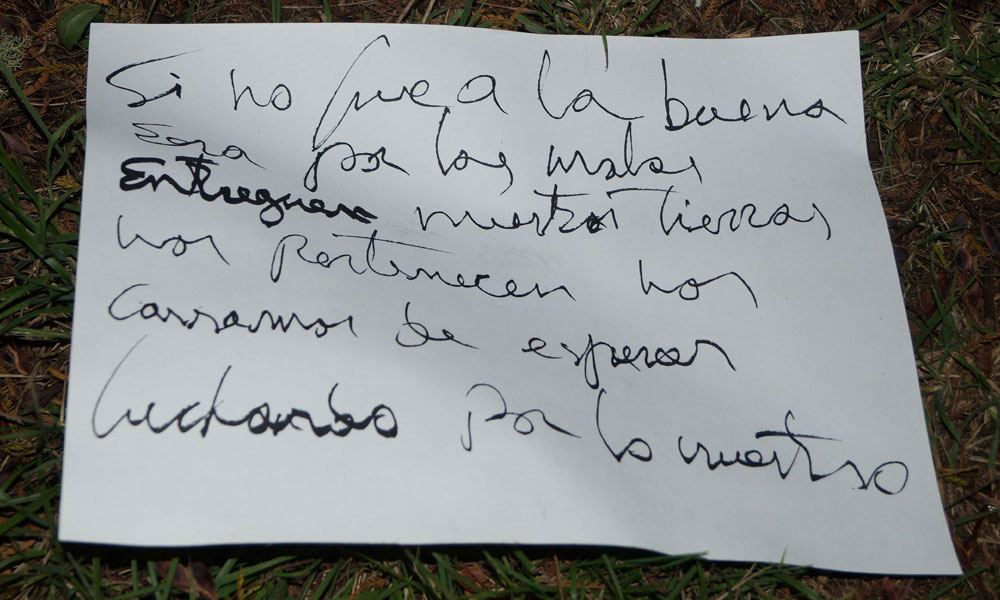 Si no fue a la buena
Sera por las malas
Entreguen nuestras tierras
nos Pertenecen nos
cansamos de esperar
luchando por lo nuestro